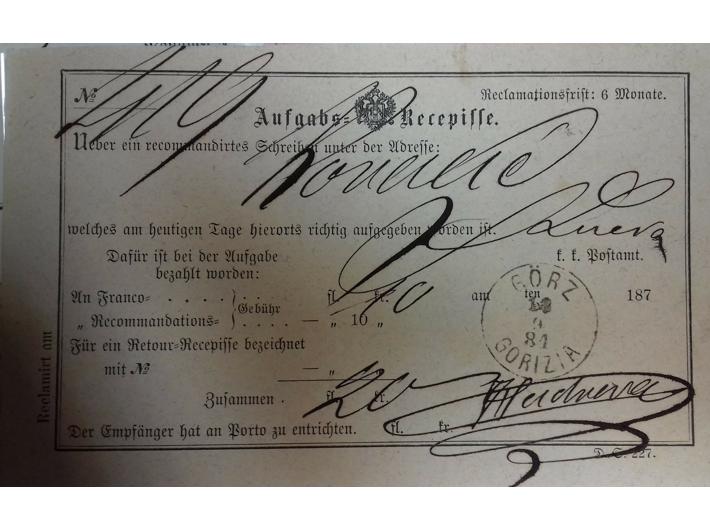 № 419
Reclamationsfrist: 6 Monate.
Aufgabs- Recepisse.
Ueber ein recommandirtes Schreiben unter der Adresse:
welches am heutigen Tage hierorts richtig aufgegeben worden ist.
Dafür ist bei der Aufgabe
bezahlt worden:
k. k. Postamt.
An Franco- . . . . . . . fl. kr. am ten 187
Gebühr
„ Recommandations- . . . . — „ 10 „
GÖRZ
9
81
GORIZIA
Für ein Retour-Recepisse bezeichnet
mit № — „
Zusammen . fl. 20 kr.
Der Empfänger hat an Porto zu entrichten. fl. kr.
D. S. 227.
Reclamirt am